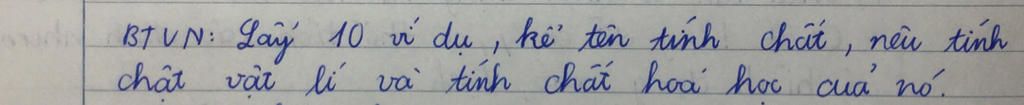 BTVN: Lấy 10 ví dụ, kể tên tính chất, nêu tính
chất vật lí và tính chất hoá học của nó.